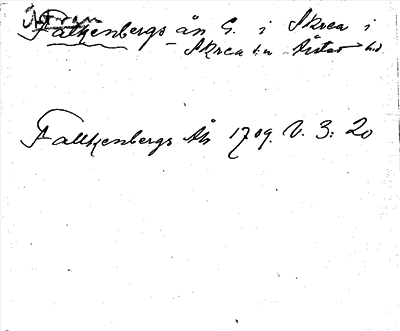 Falkenbergs ån G. i Skrea i
Skrea sn Årstad hd.
Fallkenbergs Åh 1709. V. 3: 20